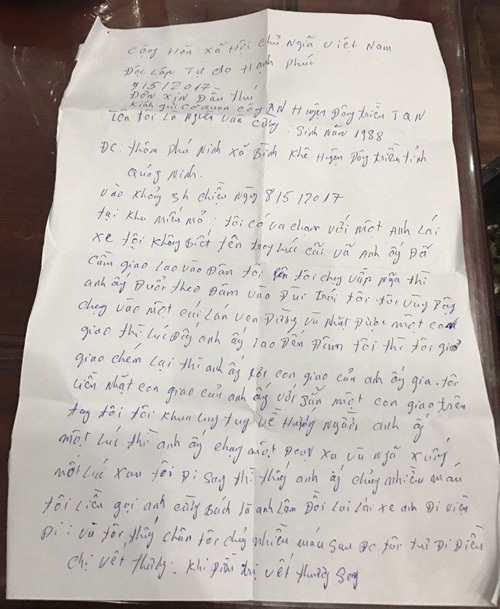 Cộng Hòa Xã Hội Chủ Nghĩa Việt Nam
Độc Lập Tự do Hạnh Phúc
9/5/2017
ĐƠN XIN Đầu thú
Kính gửi cơ quan Công AN Huyện Đông triều TQN
Tên tôi là Nguyễn Văn Cường. Sinh Năm 1988
ĐC: thôn Phú Ninh Xã Bình Khê Huyện Đông triều tỉnh
Quảng Ninh.
vào Khoảng 3h chiều Ngày 8/5/2017
tại Khu miếu mỏ: tôi có va chạm với một Anh lái
xe tôi không Biết tên trong lúc cãi vã Anh ấy Đã
Cầm giao lao vào Đâm tôi tôi chạy vấp Ngã thì
anh ấy Đuổi theo Đâm vào Đùi trái tôi tôi vùng Dậy
chạy vào một cái Lan ven Đường và Nhặt Được một con
giao thì lúc Đấy anh ấy lao Đến Đâm tôi thì tôi giơ
giao chem Lại thì anh ấy rơi con giao của anh ấy gia. tôi
liền Nhặt con giao của anh ấy với sẵn một con giao trên
tay tôi tôi khua Luy tuy về Hướng Người anh ấy
một lúc thì anh ấy chạy một Đoạn xa và Ngã xuống
một lúc xau tôi Đi sang thì thấy anh ấy chảy nhiều máu
tôi liền gọi anh cùng Bách là anh Lâm Đồi lai lái xe anh Đi viện
Đi: và tôi thấy chân tôi chảy nhiều máu sau Đó tôi tự Đi Điều
chị vết thương. Khi Điều trị vết thương xong